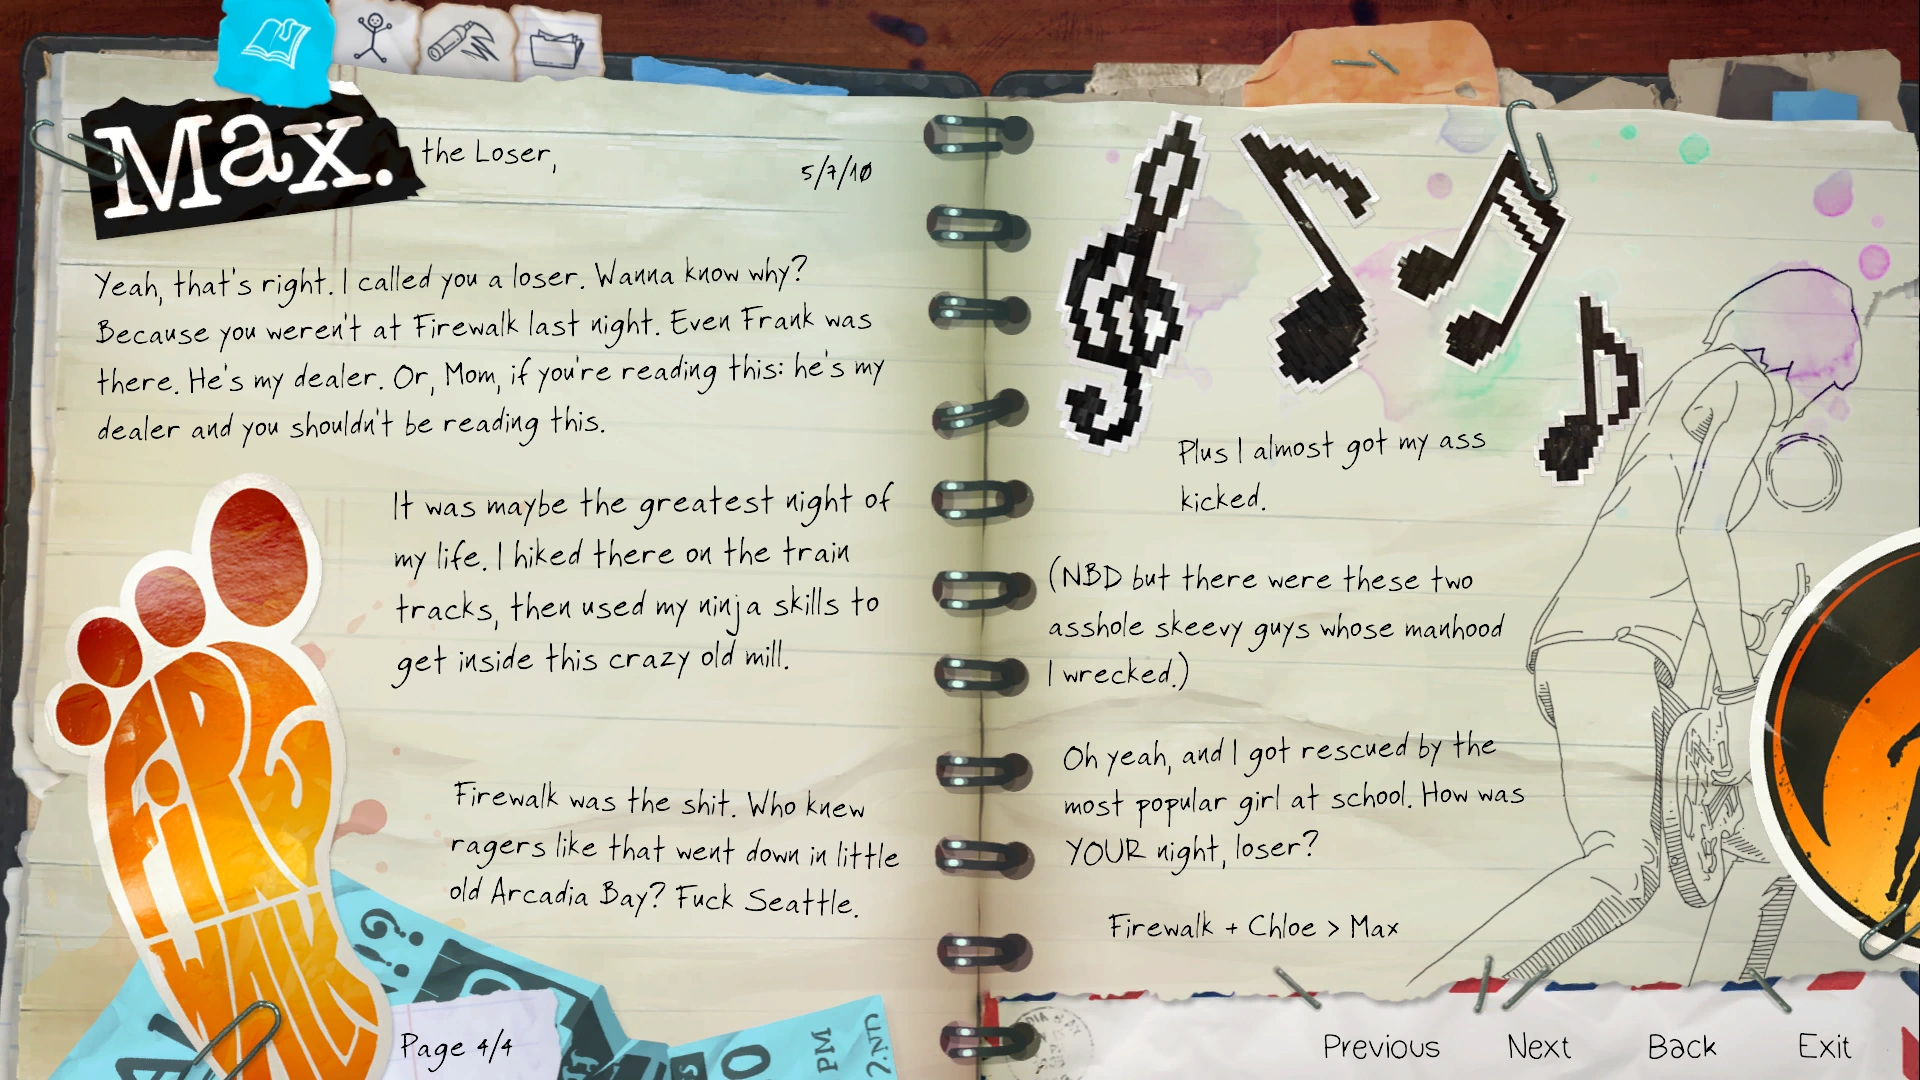 Max.
the Loser,
5/7/10
Yeah, that's right. I called you a loser. Wanna know why?
Because you weren't at Firewalk last night. Even Frank was
there. He's my dealer. Or, Mom, if you're reading this: he's my
dealer and you shouldn't be reading this.
It was maybe the greatest night of
my life. I hiked there on the train
tracks, then used my ninja skills to
get inside this crazy old mill.
FIRE
WALK
Firewalk was the shit. Who knew
ragers like that went down in little
old Arcadia Bay? Fuck Seattle.
PM
Page 4/4
Plus I almost got my ass
kicked.
(NBD but there were these two
asshole skeevy guys whose manhood
I wrecked.)
Oh yeah, and I got rescued by the
most popular girl at school. How was
YOUR night, loser?
Firewalk + Chloe > Max
Previous
Next
Back
Exit